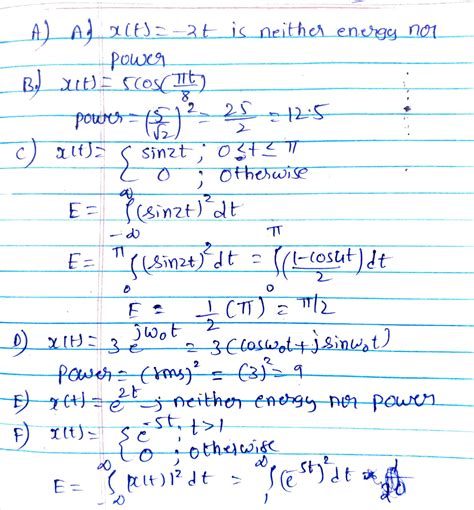 A) A) x(t) = -2t is neither energy nor
power
B) x(t) = 5cos(πt/8)
power = (5/√2)² = 25/2 = 12.5
C) x(t) = { sin2t ; 0 ≤ t ≤ π
0 ; otherwise
E = ∫_{-∞}^{∞} (sin2t)² dt
E = ∫_{0}^{π} (sin2t)² dt = ∫_{0}^{π} ((1-cos4t)/2) dt
E = 1/2 (π) = π/2
D) x(t) = 3 e^{jω₀t} = 3(cosω₀t + jsinω₀t)
Power = (rms)² = (3)² = 9
E) x(t) = e^{2t} → neither energy nor power
F) x(t) = { e^{-5t} ; t > 1
0 ; otherwise
E = ∫_{-∞}^{∞} |x(t)|² dt = ∫_{1}^{∞} (e^{-5t})² dt